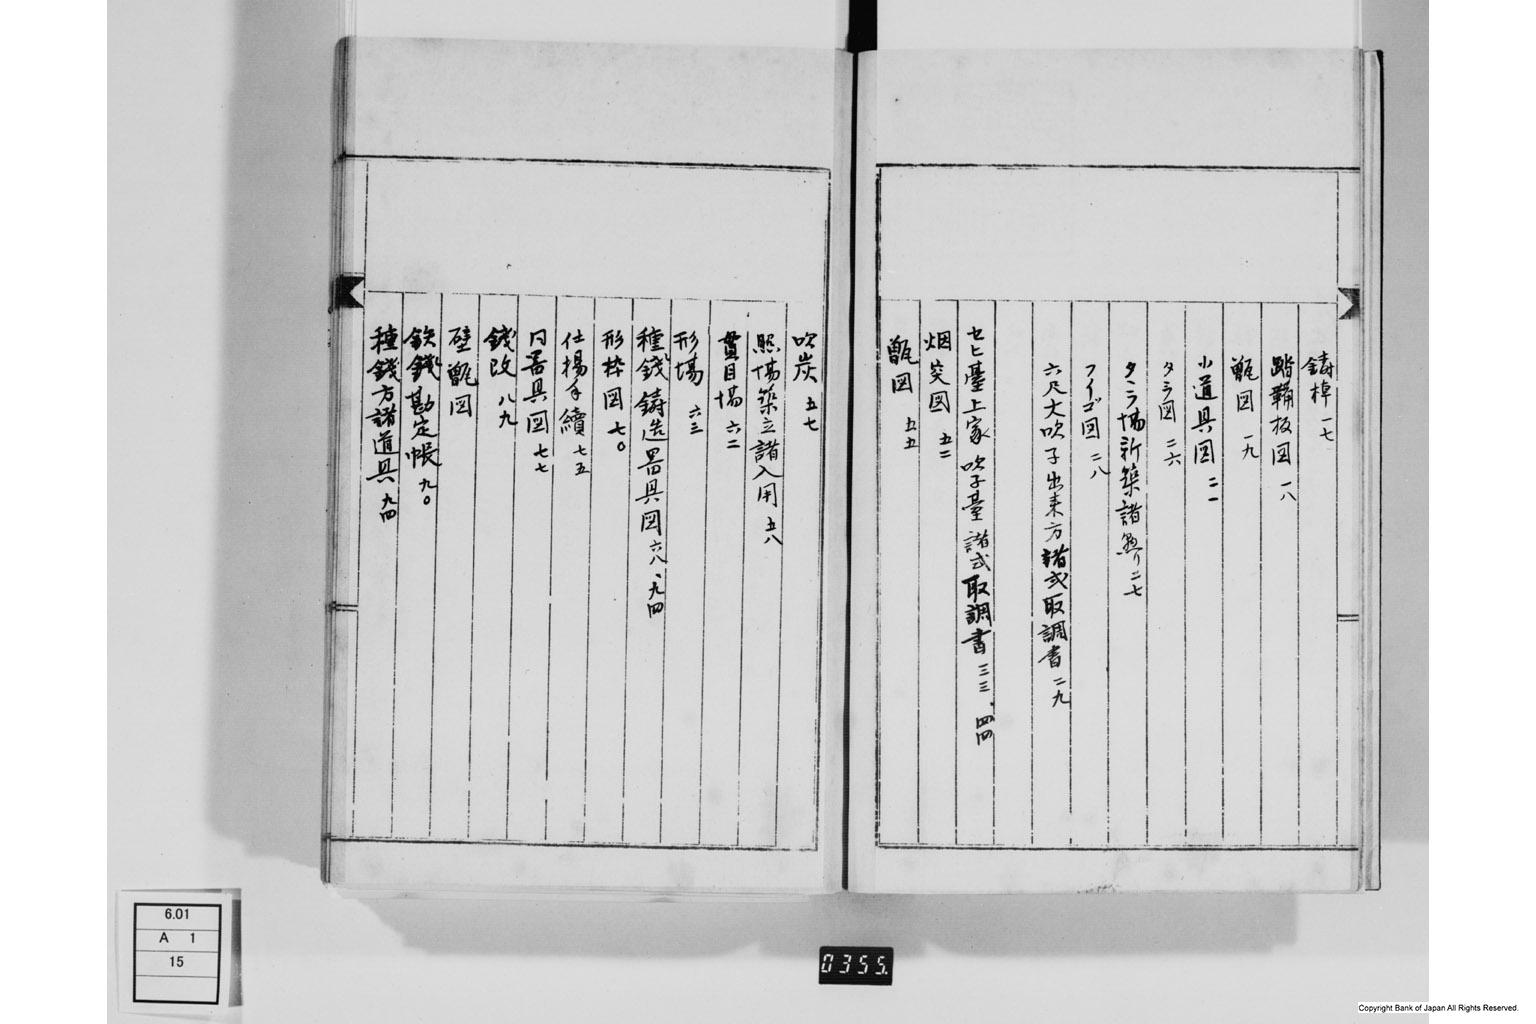 鋳棹 一七
踏鞴板図 一八
甑図 一九
小道具図 二一
タヽラ図 二六
タヽラ場新築諸掛り 二七
フイゴ図 二八
六尺大吹子出来方諸式取調書 二九
セヒ臺上家吹子臺諸式取調書 三三、四四
烟突図 五二
甑図 五五
吹炭 五七
照場築立諸入用 五八
貫目場 六二
形場 六三
種錢鋳造器具図 六八、九四
形枠図 七〇
仕揚手續 七五
同器具図 七七
錢改 八九
硅甑図
鉄錢勘定帳 九〇
種錢方諸道具 九四
6.01
A 1
15
0355.
Copyright Bank of Japan All Rights Reserved.